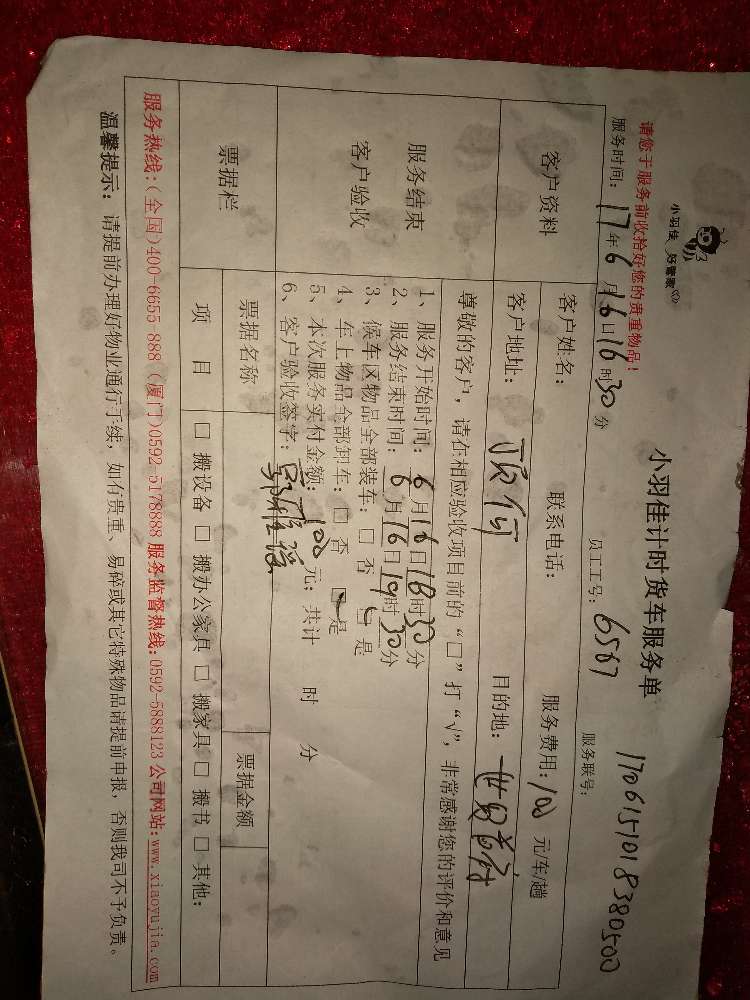 小羽佳 好管家
小羽佳计时货车服务单
1706151018380500
请您于服务前收拾好您的贵重物品！
服务时间：17年6月16日16时30分 员工工号：6567 服务联号：
客户资料
客户姓名： 联系电话： 服务费用：100元车/趟
客户地址： 目的地：
服务结束
客户验收
尊敬的客户，请在相应验收项目前的“□”打“√”，非常感谢您的评价和意见
1、服务开始时间：6月16日18时30分
2、服务结束时间：6月16日19时30分
3、候车区物品全部装车：□否 □是
4、车上物品全部卸车：□否 □是
5、本次服务实付金额：100元；共计 时 分
6、客户验收签字：
票据栏
票据名称 票据金额
项 目 □搬设备 □搬办公家具 □搬家具 □搬书 □其他：
服务热线：(全国)400-6655-888 (厦门)0592-5178888 服务监督热线：0592-5888123 公司网站：www.xiaoyujia.com
温馨提示：请提前办理好物业通行手续，如有贵重、易碎或其它特殊物品请提前申报，否则我司不予负责。